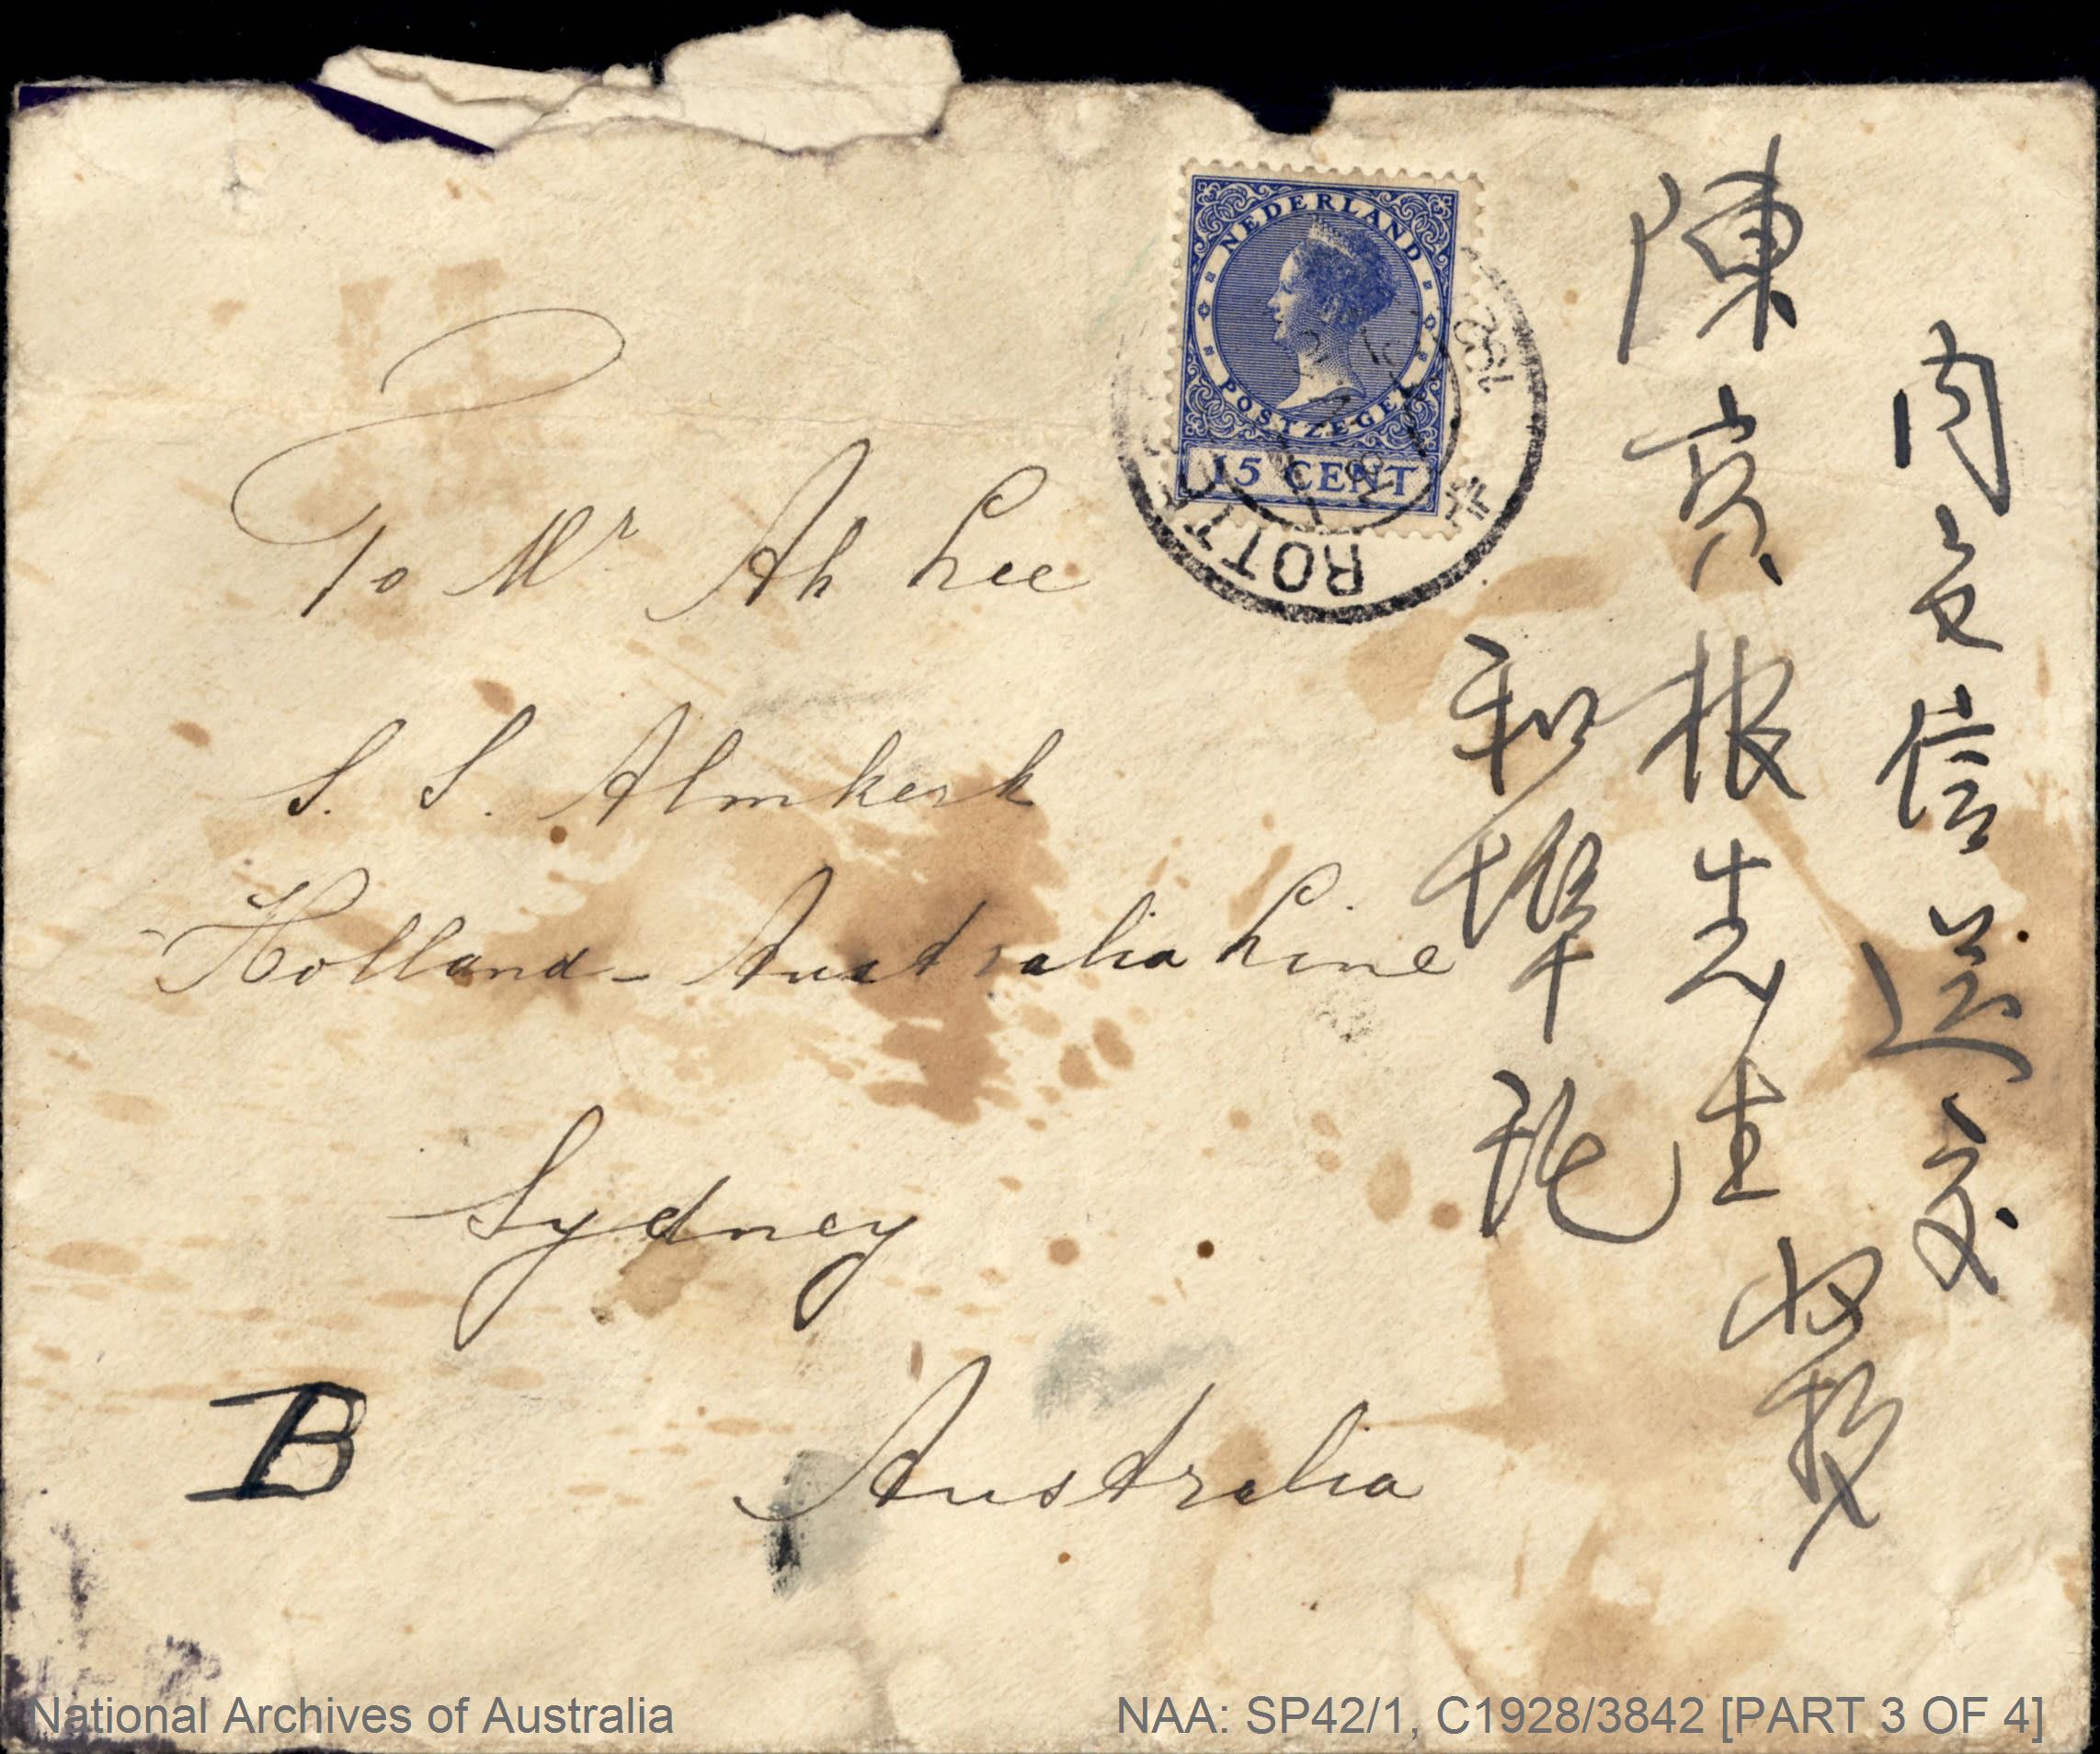 NEDERLAND
POSTZEGEL
15 CENT
ROTT
To Mr Ah Lee
S. S. Almkerk
Holland - Australia Line
Sydney
Australia
B
內 信送交
陳 根先生收
和 托
National Archives of Australia
NAA: SP42/1, C1928/3842 [PART 3 OF 4]